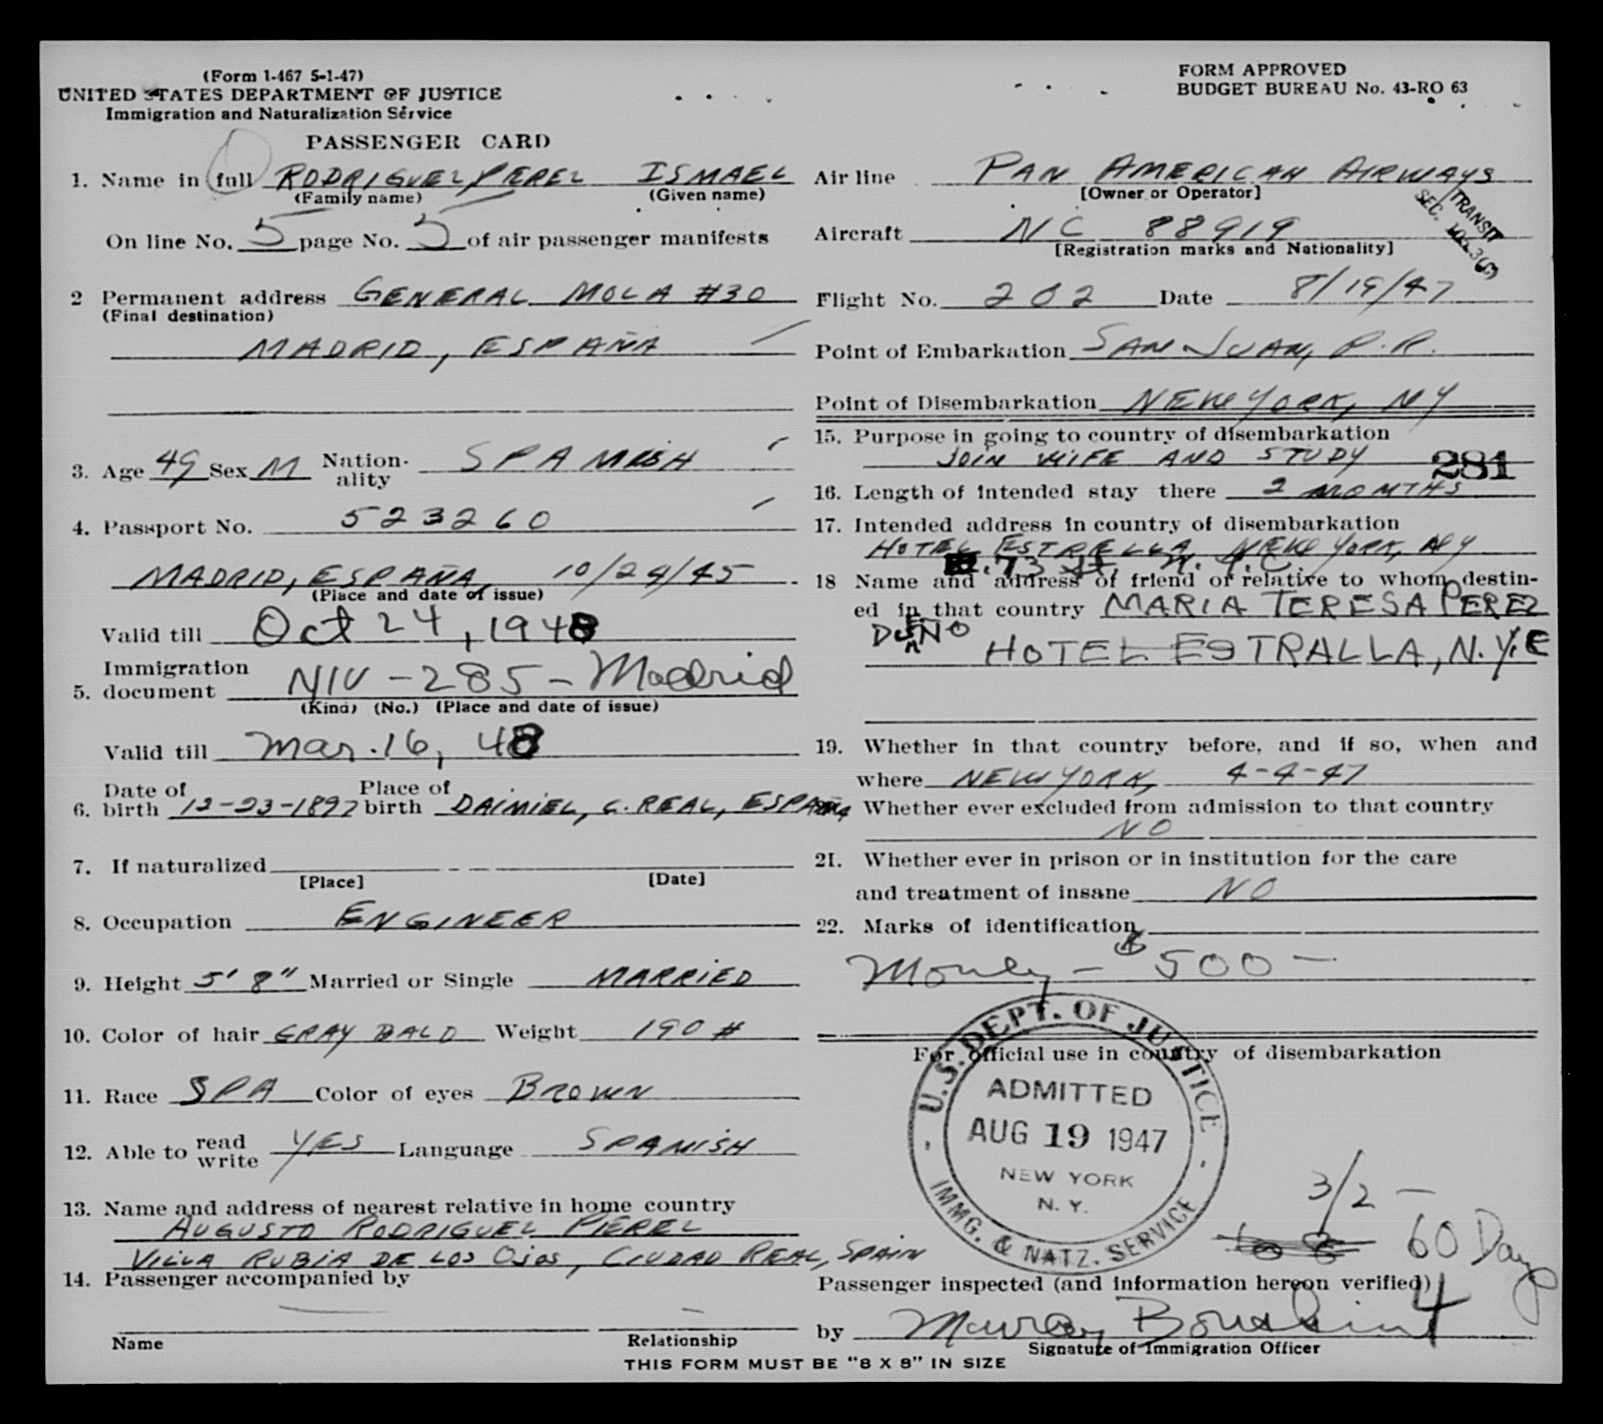 (Form I-467 5-1-47)
UNITED STATES DEPARTMENT OF JUSTICE
Immigration and Naturalization Service
PASSENGER CARD
FORM APPROVED
BUDGET BUREAU No. 43-RO 63
1. Name in full RODRIGUEZ PEREZ ISMAEL
(Family name) (Given name)
On line No. 5 page No. 5 of air passenger manifests
2 Permanent address GENERAL MOLA #30
(Final destination)
MADRID, ESPAÑA
3. Age 49 Sex M Nation-ality SPANISH
4. Passport No. 523260
MADRID, ESPAÑA, 10/24/45
(Place and date of issue)
Valid till Oct 24, 1948
Immigration
5. document NIV - 285 - Madrid
(Kind) (No.) (Place and date of issue)
Valid till Mar. 16, 48
Date of Place of
6. birth 12-23-1897 birth DAIMIEL, C. REAL, ESPAÑA
7. If naturalized
[Place] [Date]
8. Occupation ENGINEER
9. Height 5' 8" Married or Single MARRIED
10. Color of hair GRAY BALD Weight 190 #
11. Race SPA Color of eyes BROWN
12. Able to read write YES Language SPANISH
13. Name and address of nearest relative in home country
AUGUSTO RODRIGUEZ PEREZ
VILLA RUBIA DE LOS OJOS, CIUDAD REAL, SPAIN
14. Passenger accompanied by
Name Relationship
Air line PAN AMERICAN AIRWAYS
[Owner or Operator]
TRANSIT
SEC.
Aircraft NC 88919
[Registration marks and Nationality]
Flight No. 202 Date 8/19/47
Point of Embarkation SAN JUAN, P.R.
Point of Disembarkation NEW YORK, NY
15. Purpose in going to country of disembarkation
JOIN WIFE AND STUDY
281
16. Length of intended stay there 2 MONTHS
17. Intended address in country of disembarkation
HOTEL ESTRELLA, NEW YORK, NY
73 St. N.Y.C.
18 Name and address of friend or relative to whom destin-
ed in that country MARIA TERESA PEREZ
HOTEL ESTRALLA, N.Y.C
19. Whether in that country before, and if so, when and
where NEW YORK, 4-4-47
Whether ever excluded from admission to that country
NO
21. Whether ever in prison or in institution for the care
and treatment of insane NO
22. Marks of identification
Money - $500 -
For official use in country of disembarkation
U.S. DEPT. OF JUSTICE
ADMITTED
AUG 19 1947
NEW YORK
N. Y.
IMMG. & NATZ. SERVICE
3/2 -
60 Days
Passenger inspected (and information hereon verified)
4
by
Signature of Immigration Officer
THIS FORM MUST BE "8 X 8" IN SIZE